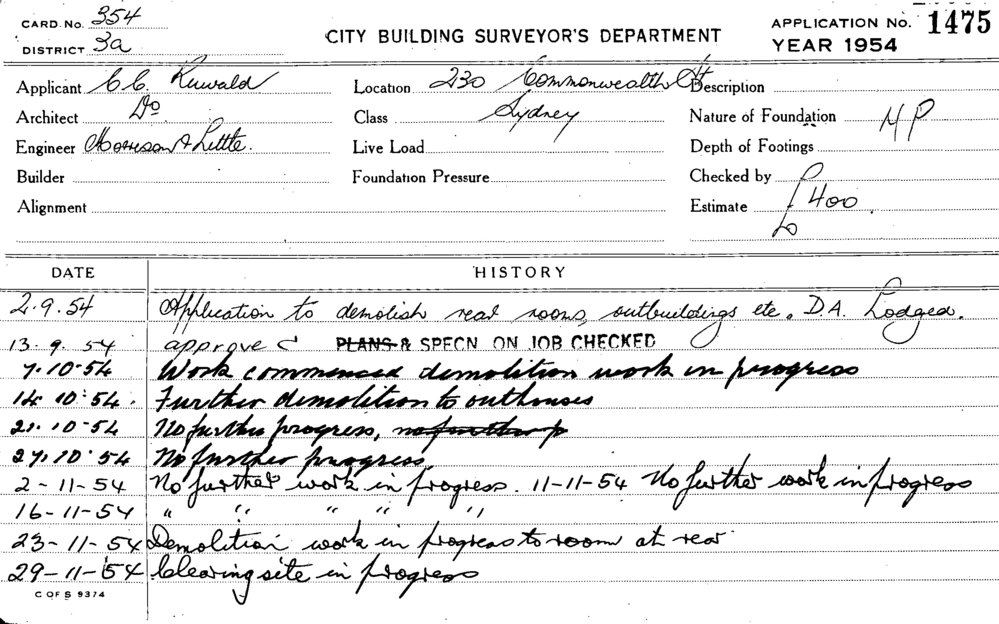 CARD. No. 354
DISTRICT 3a
CITY BUILDING SURVEYOR'S DEPARTMENT
APPLICATION No. 1475
YEAR 1954
Applicant C.C. Ruwald
Location 230 Commonwealth St
Description
Architect Do
Class Sydney
Nature of Foundation HP
Engineer Morrison & Little.
Live Load
Depth of Footings
Builder
Foundation Pressure
Checked by
Alignment
Estimate £400.
Lo
DATE HISTORY
2.9.54 Application to demolish rear rooms, outbuildings etc. D.A. Lodged.
13.9.54 approved PLANS & SPECN ON JOB CHECKED
7.10.54 Work commenced demolition work in progress
14.10.54. Further demolition to outhouses
21.10.54 No further progress, no further p
27.10.54 No further progress
2-11-54 No further work in progress. 11-11-54 No further work in progress
16-11-54 " " " " "
23-11-54 Demolition work in progress to room at rear
29-11-54 Clearing site in progress
C OF S 9374